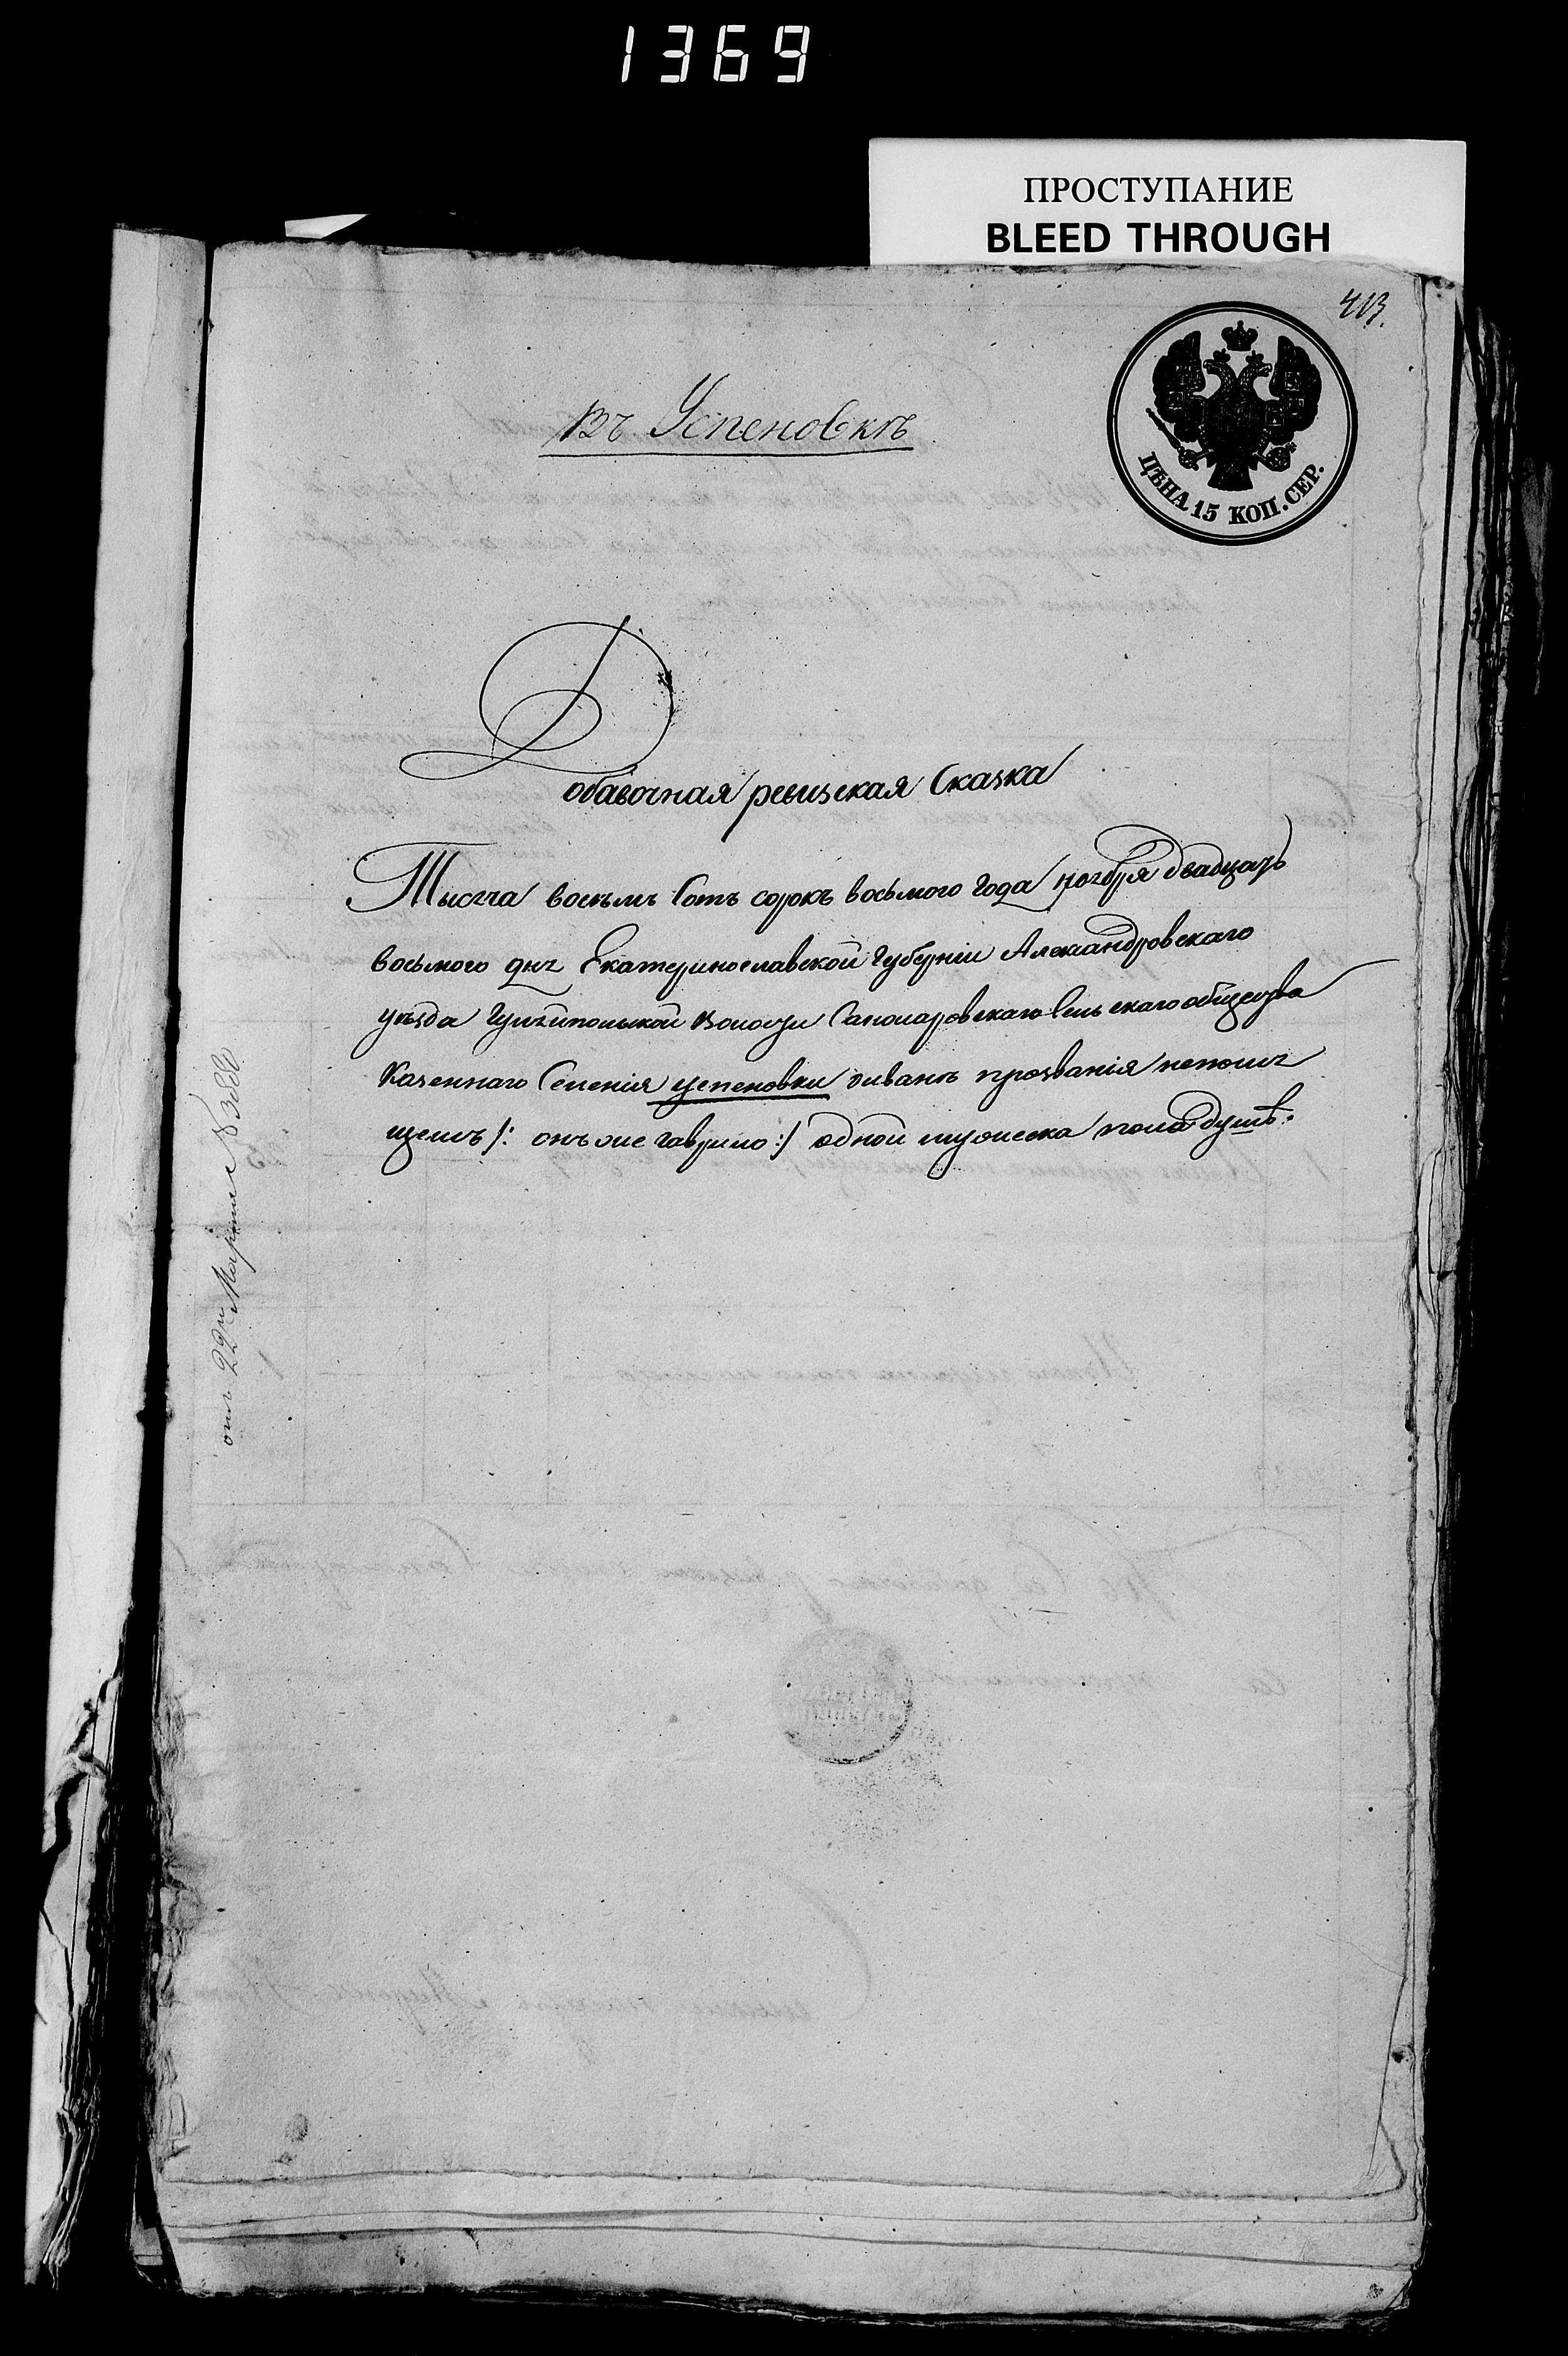 1369
ПРОСТУПАНИЕ
BLEED THROUGH
413.
ЦѢНА 15 КОП. СЕР.
Въ Успеновкѣ
Добавочная ревизская Сказка
Тысяча восемь Сотъ сорокъ восьмого года ноября двадцать
восьмого дня Екатеринославской Губерніи Александровскаго
уѣзда Гуляйпольской Волости Санжаровскаго Сельскаго общества
Казеннаго Селенія успеновки прозванія непомня
щемъ /: онъ же гаврило :/ одной мужеска пола душѣ.
отъ 22го Марта № 3880